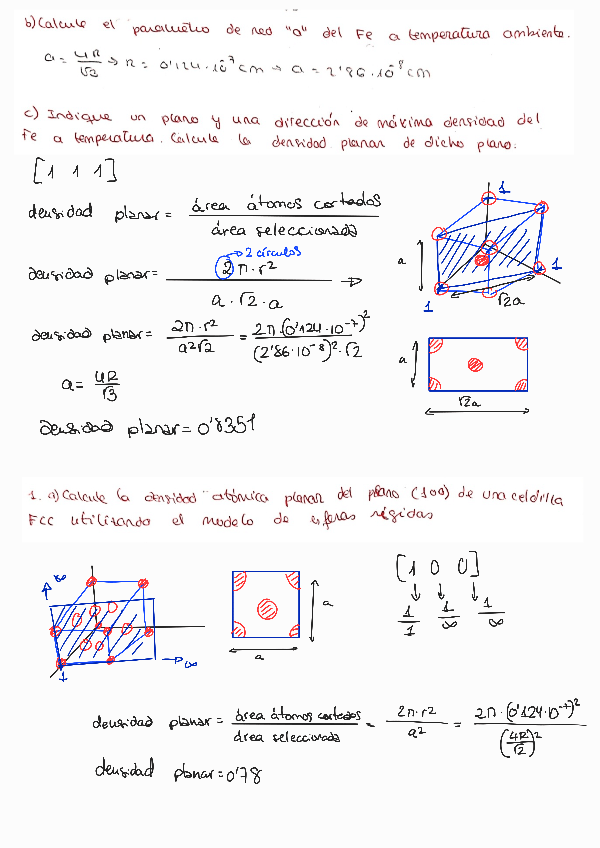 b) Calcule el parámetro de red "a" del Fe a temperatura ambiente.
a = 4R/√3 → R = 0'124·10⁻⁷ cm → a = 2'86·10⁻⁸ cm
c) Indique un plano y una dirección de máxima densidad del
Fe a temperatura. Calcule la densidad planar de dicho plano.
[1 1 1]
densidad planar = área átomos cortados / área seleccionada
→ 2 círculos
densidad planar = 2π·r² / a·√2·a →
densidad planar = 2π·r² / a²√2 = 2π·(0'124·10⁻⁷)² / (2'86·10⁻⁸)²·√2
a = 4R/√3
densidad planar = 0'8351
1
a
1
1
√2a
a
√2a
1. a) Calcule la densidad atómica planar del plano (100) de una celdilla
FCC utilizando el modelo de esferas rígidas
∞
1
∞
a
a
[1 0 0]
↓ ↓ ↓
1/1 1/∞ 1/∞
densidad planar = área átomos cortados / área seleccionada = 2π·r² / a² = 2π·(0'124·10⁻⁷)² / (4R/√2)²
densidad planar = 0'78